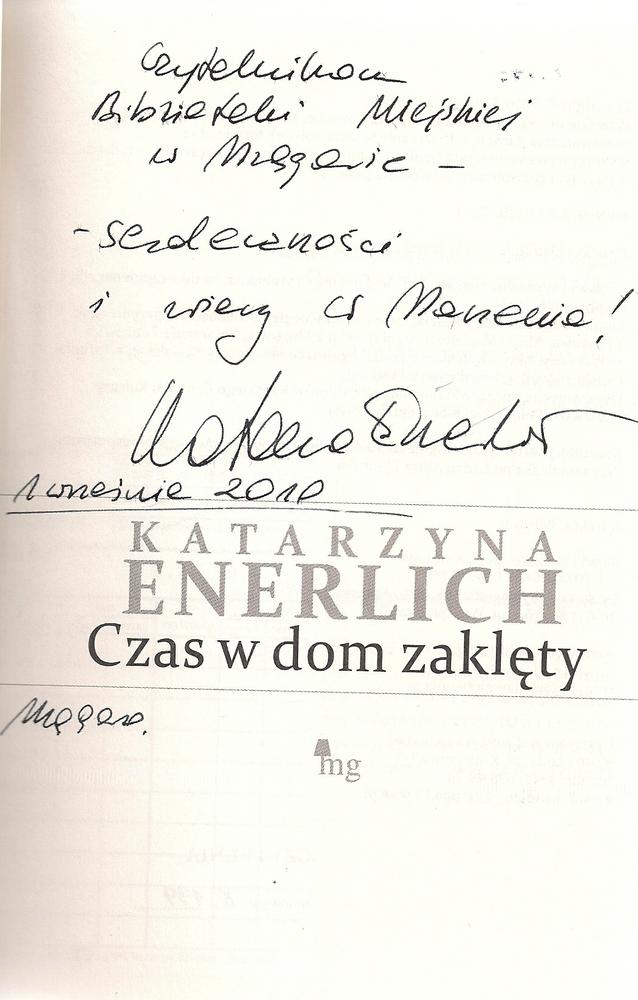 Czytelnikom
Biblioteki Miejskiej
w Mrągowie -
- serdeczności
i wiary w Marzenia!
Katarzyna Enerlich
1 wrześnie 2010
KATARZYNA
ENERLICH
Czas w dom zaklęty
Mrągowo.
mg